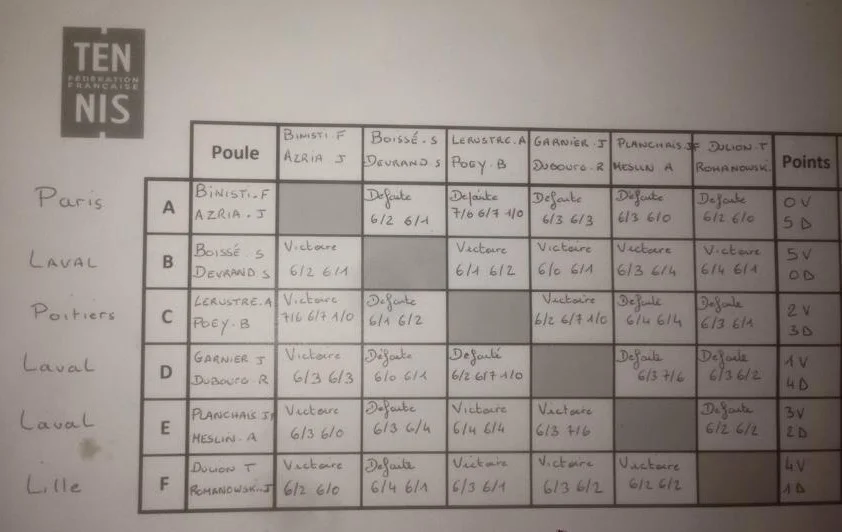 TEN
FÉDÉRATION
FRANÇAISE
NIS
Poule BINISTI.F BOISSÉ.S LERUSTRE.A GARNIER J PLANCHAIS JF DULION.T Points
AZRIA J DEVRAND S POEY.B DUBOURG.R MESLIN A ROMANOWSK.
Paris A BINISTI.F Defaite Defaite Defaite Défaite Defaite 0V
AZRIA.J 6/2 6/1 7/6 6/7 1/0 6/3 6/3 6/3 6/0 6/2 6/0 5D
LAVAL B BOISSÉ S Victoire Victoire Victoire Victoire Victoire 5V
DEVRAND S 6/2 6/1 6/1 6/2 6/0 6/1 6/3 6/4 6/4 6/1 0D
Poitiers C LERUSTRE.A Victoire Defaite Victoire Defaite Defaite 2V
POEY.B 7/6 6/7 1/0 6/1 6/2 6/2 6/7 1/0 6/4 6/4 6/3 6/1 3D
Laval D GARNIER J Victoire Défaite Defaite Defaite Defaite 1V
DUBOURG R 6/3 6/3 6/0 6/1 6/2 6/7 1/0 6/3 7/6 6/3 6/2 4D
Laval E PLANCHAIS JF Victoire Defaite Victoire Victoire Defaite 3V
MESLIN.A 6/3 6/0 6/3 6/4 6/4 6/4 6/3 7/6 6/2 6/2 2D
Lille F DULION T Victoire Defaite Victoire Victoire Victoire 4V
ROMANOWSK.J 6/2 6/0 6/4 6/1 6/3 6/1 6/3 6/2 6/2 6/2 1D